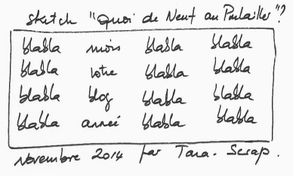 sketch "Quoi de Neuf au Poulailler"?
blabla mois blabla blabla
blabla votre blabla blabla
blabla blog blabla blabla
blabla année blabla blabla
Novembre 2014 par Tara. Scrap.